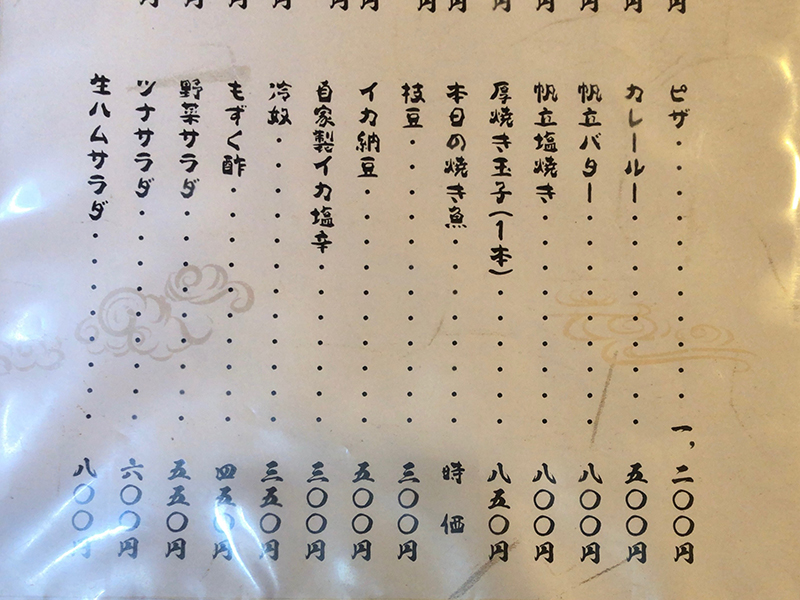 円 円 円 円 円 円 円 円 円 円 円 円 円
ピザ・・・・・・・・・・・一，二〇〇円
カレールー・・・・・・・・・五〇〇円
帆立バター・・・・・・・・・八〇〇円
帆立塩焼き・・・・・・・・・八〇〇円
厚焼き玉子（１本）・・・・・・八五〇円
本日の焼き魚・・・・・・・・時価
枝豆・・・・・・・・・・・・三〇〇円
イカ納豆・・・・・・・・・・五〇〇円
自家製イカ塩辛・・・・・・・三〇〇円
冷奴・・・・・・・・・・・・三五〇円
もずく酢・・・・・・・・・・四五〇円
野菜サラダ・・・・・・・・・五五〇円
ツナサラダ・・・・・・・・・六〇〇円
生ハムサラダ・・・・・・・・八〇〇円